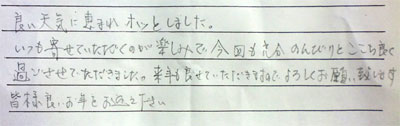 良い天気に恵まれ ホッとしました。
いつも寄せていただくのが楽しみで、今回も充分のんびりとここち良く
過ごさせていただきました。来年も寄せていただきますので、よろしくお願い致します
皆様良いお年をお迎え下さい